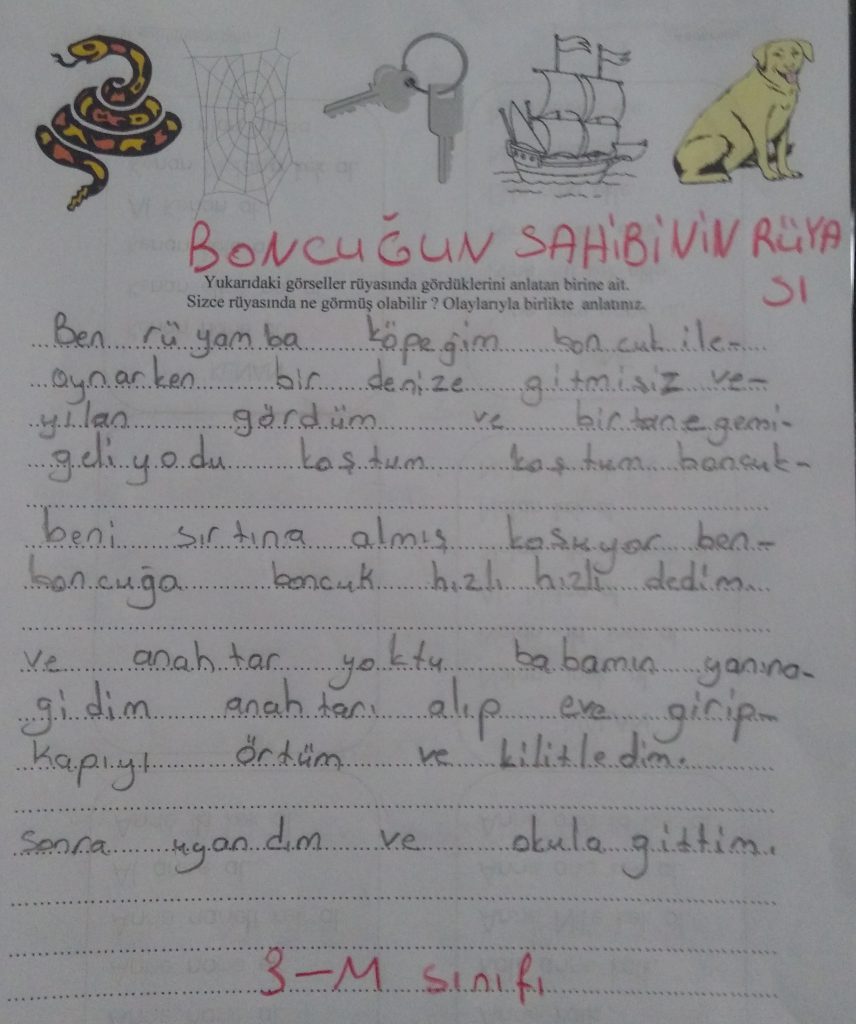 BONCUĞUN SAHİBİNİN RÜYA
SI
Yukarıdaki görseller rüyasında gördüklerini anlatan birine ait.
Sizce rüyasında ne görmüş olabilir ? Olaylarıyla birlikte anlatınız.
Ben rüyamba köpeğim boncuk ile-
oynarken bir denize gitmişiz ve-
yılan gördüm ve bir tane gemi-
geliyodu koştum koştum boncuk-
beni sırtına almış koşuyor ben-
boncuğa boncuk hızlı hızlı dedim
ve anahtar yoktu babamın yanına-
gidim anahtarı alıp eve girip-
kapıyı örtüm ve kilitledim.
sonra uyandım ve okula gittim.
3-M sınıfı